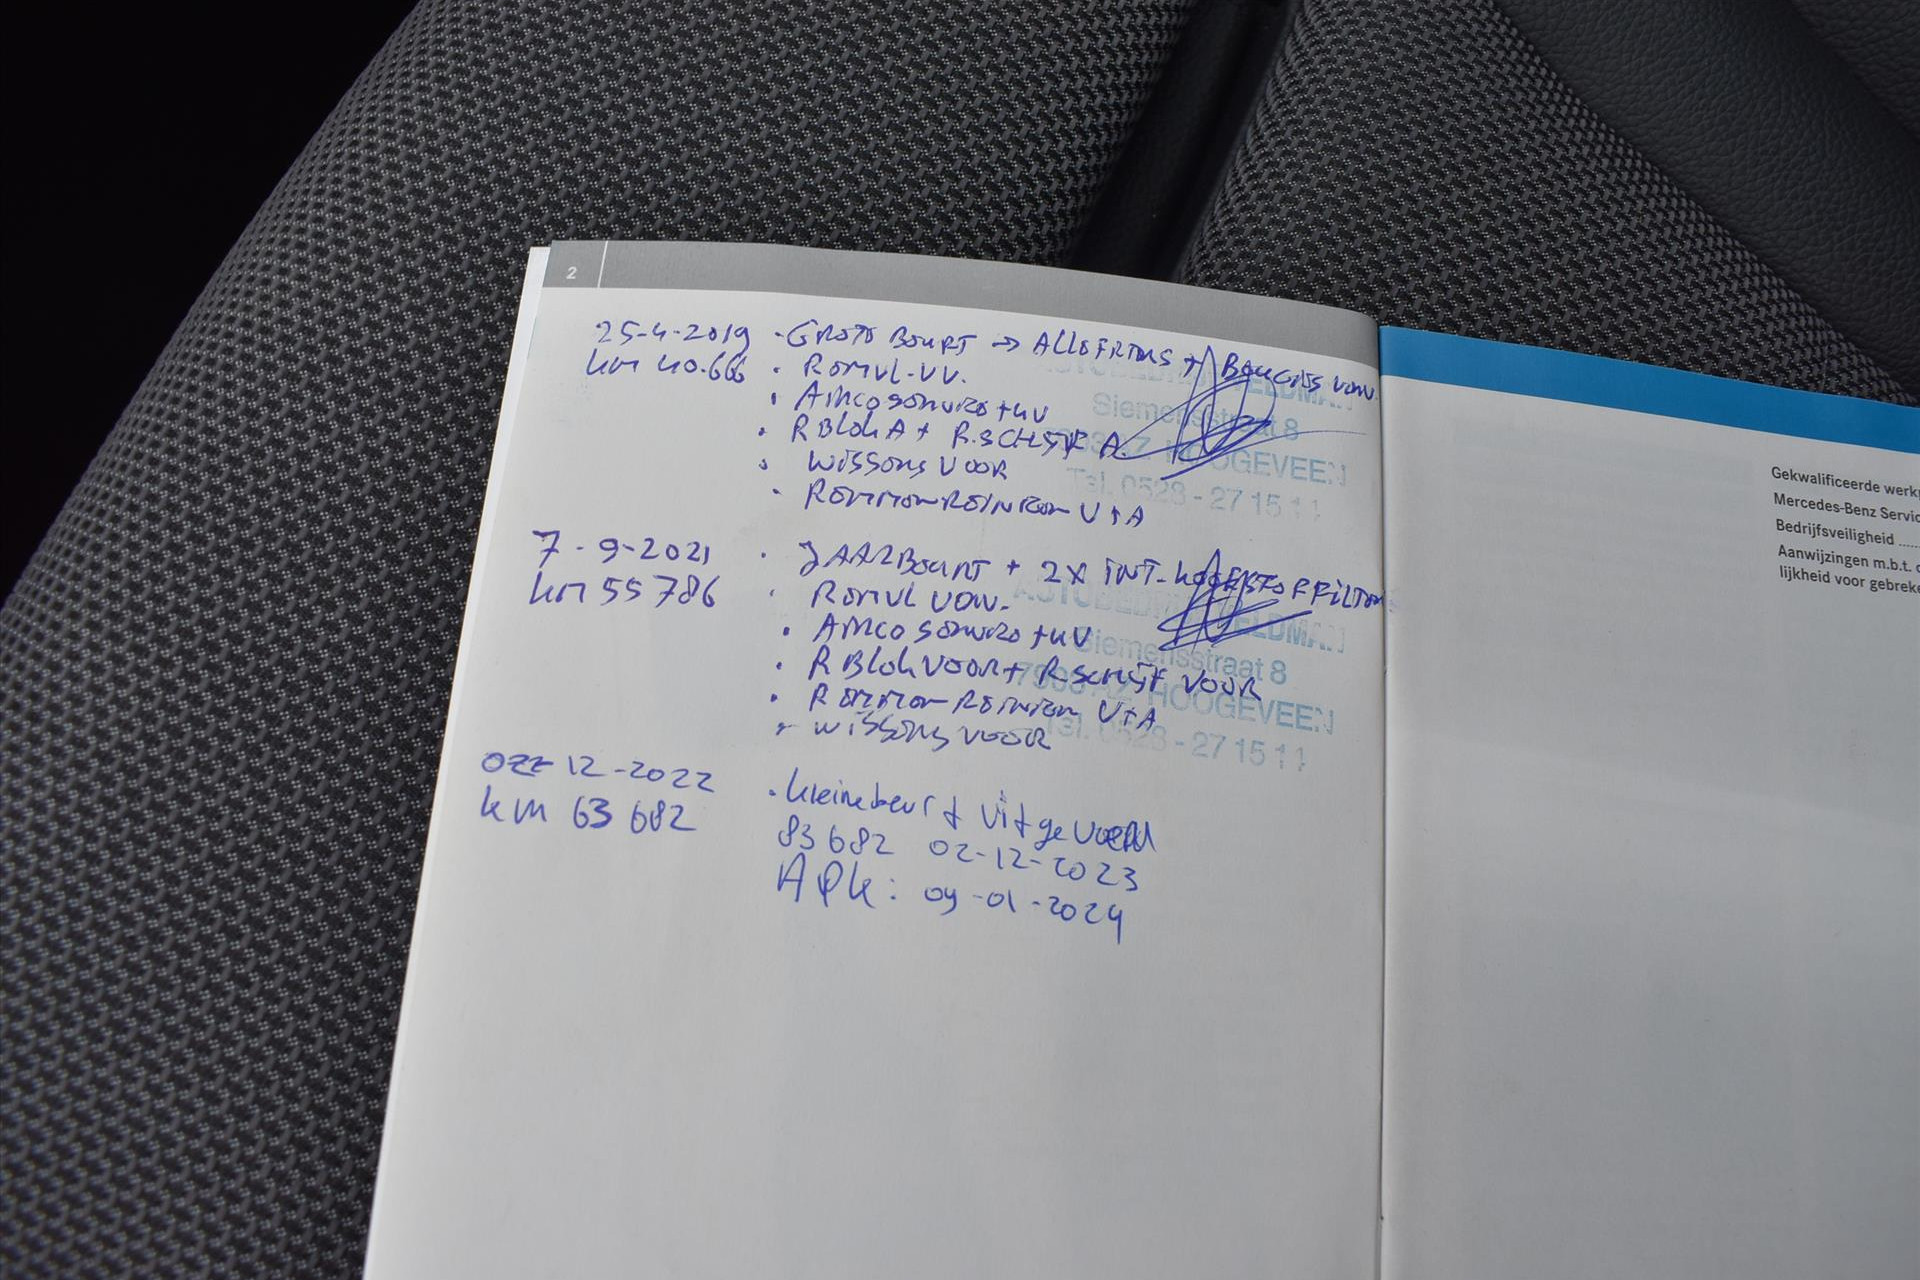 2
25-4-2019 · GROTE BEURT → ALLE FILTERS + BOUGIES VERV.
km 40.666 · REMVL. VV.
· AIRCO SERVICE + UV
· R BLOK A + R.SCHIJF A.
· WISSERS VOOR
· REMMEN REINIGEN V+A
AUTOBEDRIJF VELDMAN
Siemensstraat 8
HOOGEVEEN
Tel. 0528 - 27 15 11
7-9-2021 · JAARBEURT + 2X INT-
km 55786 · REMVL VERV.
· AIRCO SERVICE + UV
· R BLOK VOOR + R.SCHIJF VOOR
· REMMEN REINIGEN V+A
· WISSERS VOOR
AUTOBEDRIJF VELDMAN
Siemensstraat 8
HOOGEVEEN
Tel. 0528 - 27 15 11
12-2022 · kleine beurt uitgevoerd
km 63 682
83 682 02-12-2023
APk: 09-01-2024
Gekwalificeerde
Mercedes-Benz
Bedrijfsveiligheid
Aanwijzingen m.b.t.
lijkheid voor